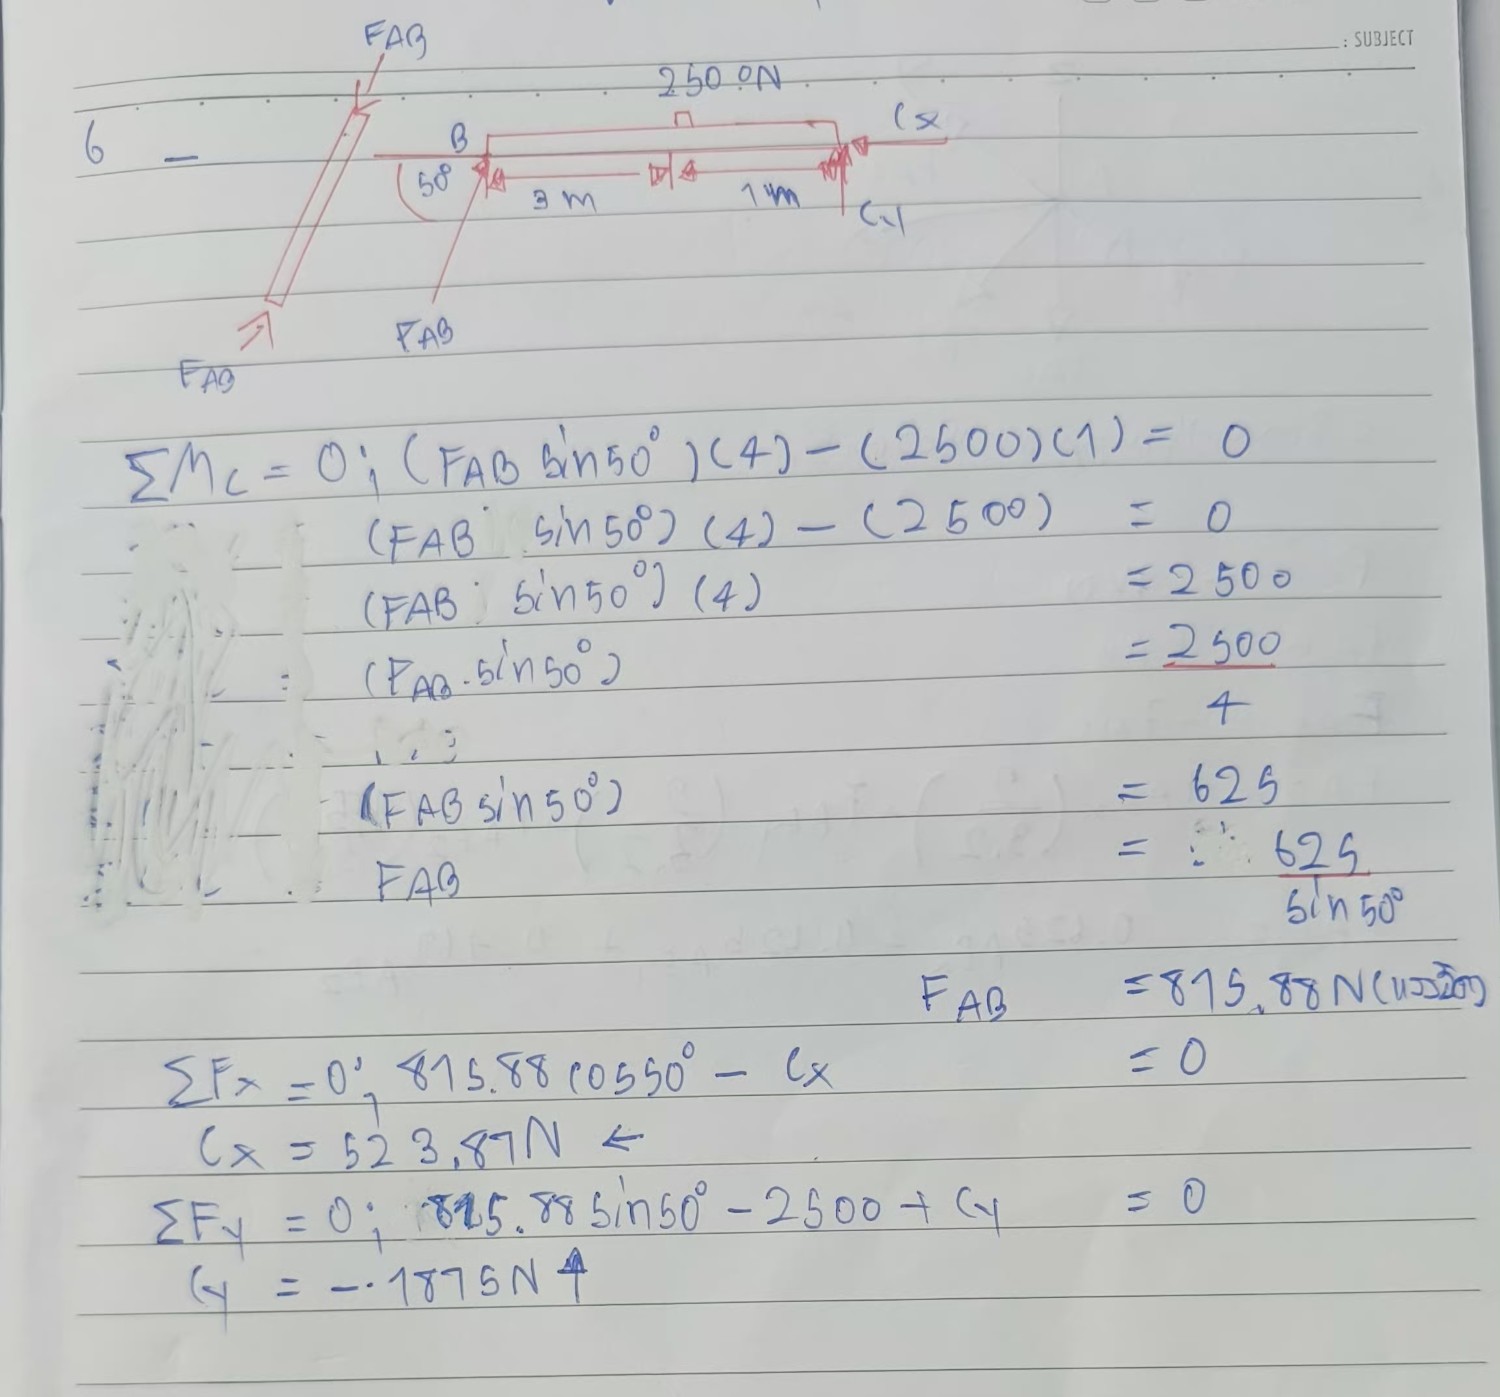 : SUBJECT
FAB
2500N
6 -
B
Cx
50°
3 m
1 m
Cy
FAB
FAB
ΣMc = 0; (FAB sin50°)(4) - (2500)(1) = 0
(FAB sin50°) (4) - (2500) = 0
(FAB sin50°) (4) = 2500
(FAB. sin50°) = 2500
4
(FAB sin50°) = 625
FAB = 625
sin50°
FAB = 815.88N (แรงอัด)
ΣFx = 0; 815.88 cos50° - Cx = 0
Cx = 523.87N ←
ΣFy = 0; 815.88 sin50° - 2500 + Cy = 0
Cy = - 1875N ↑